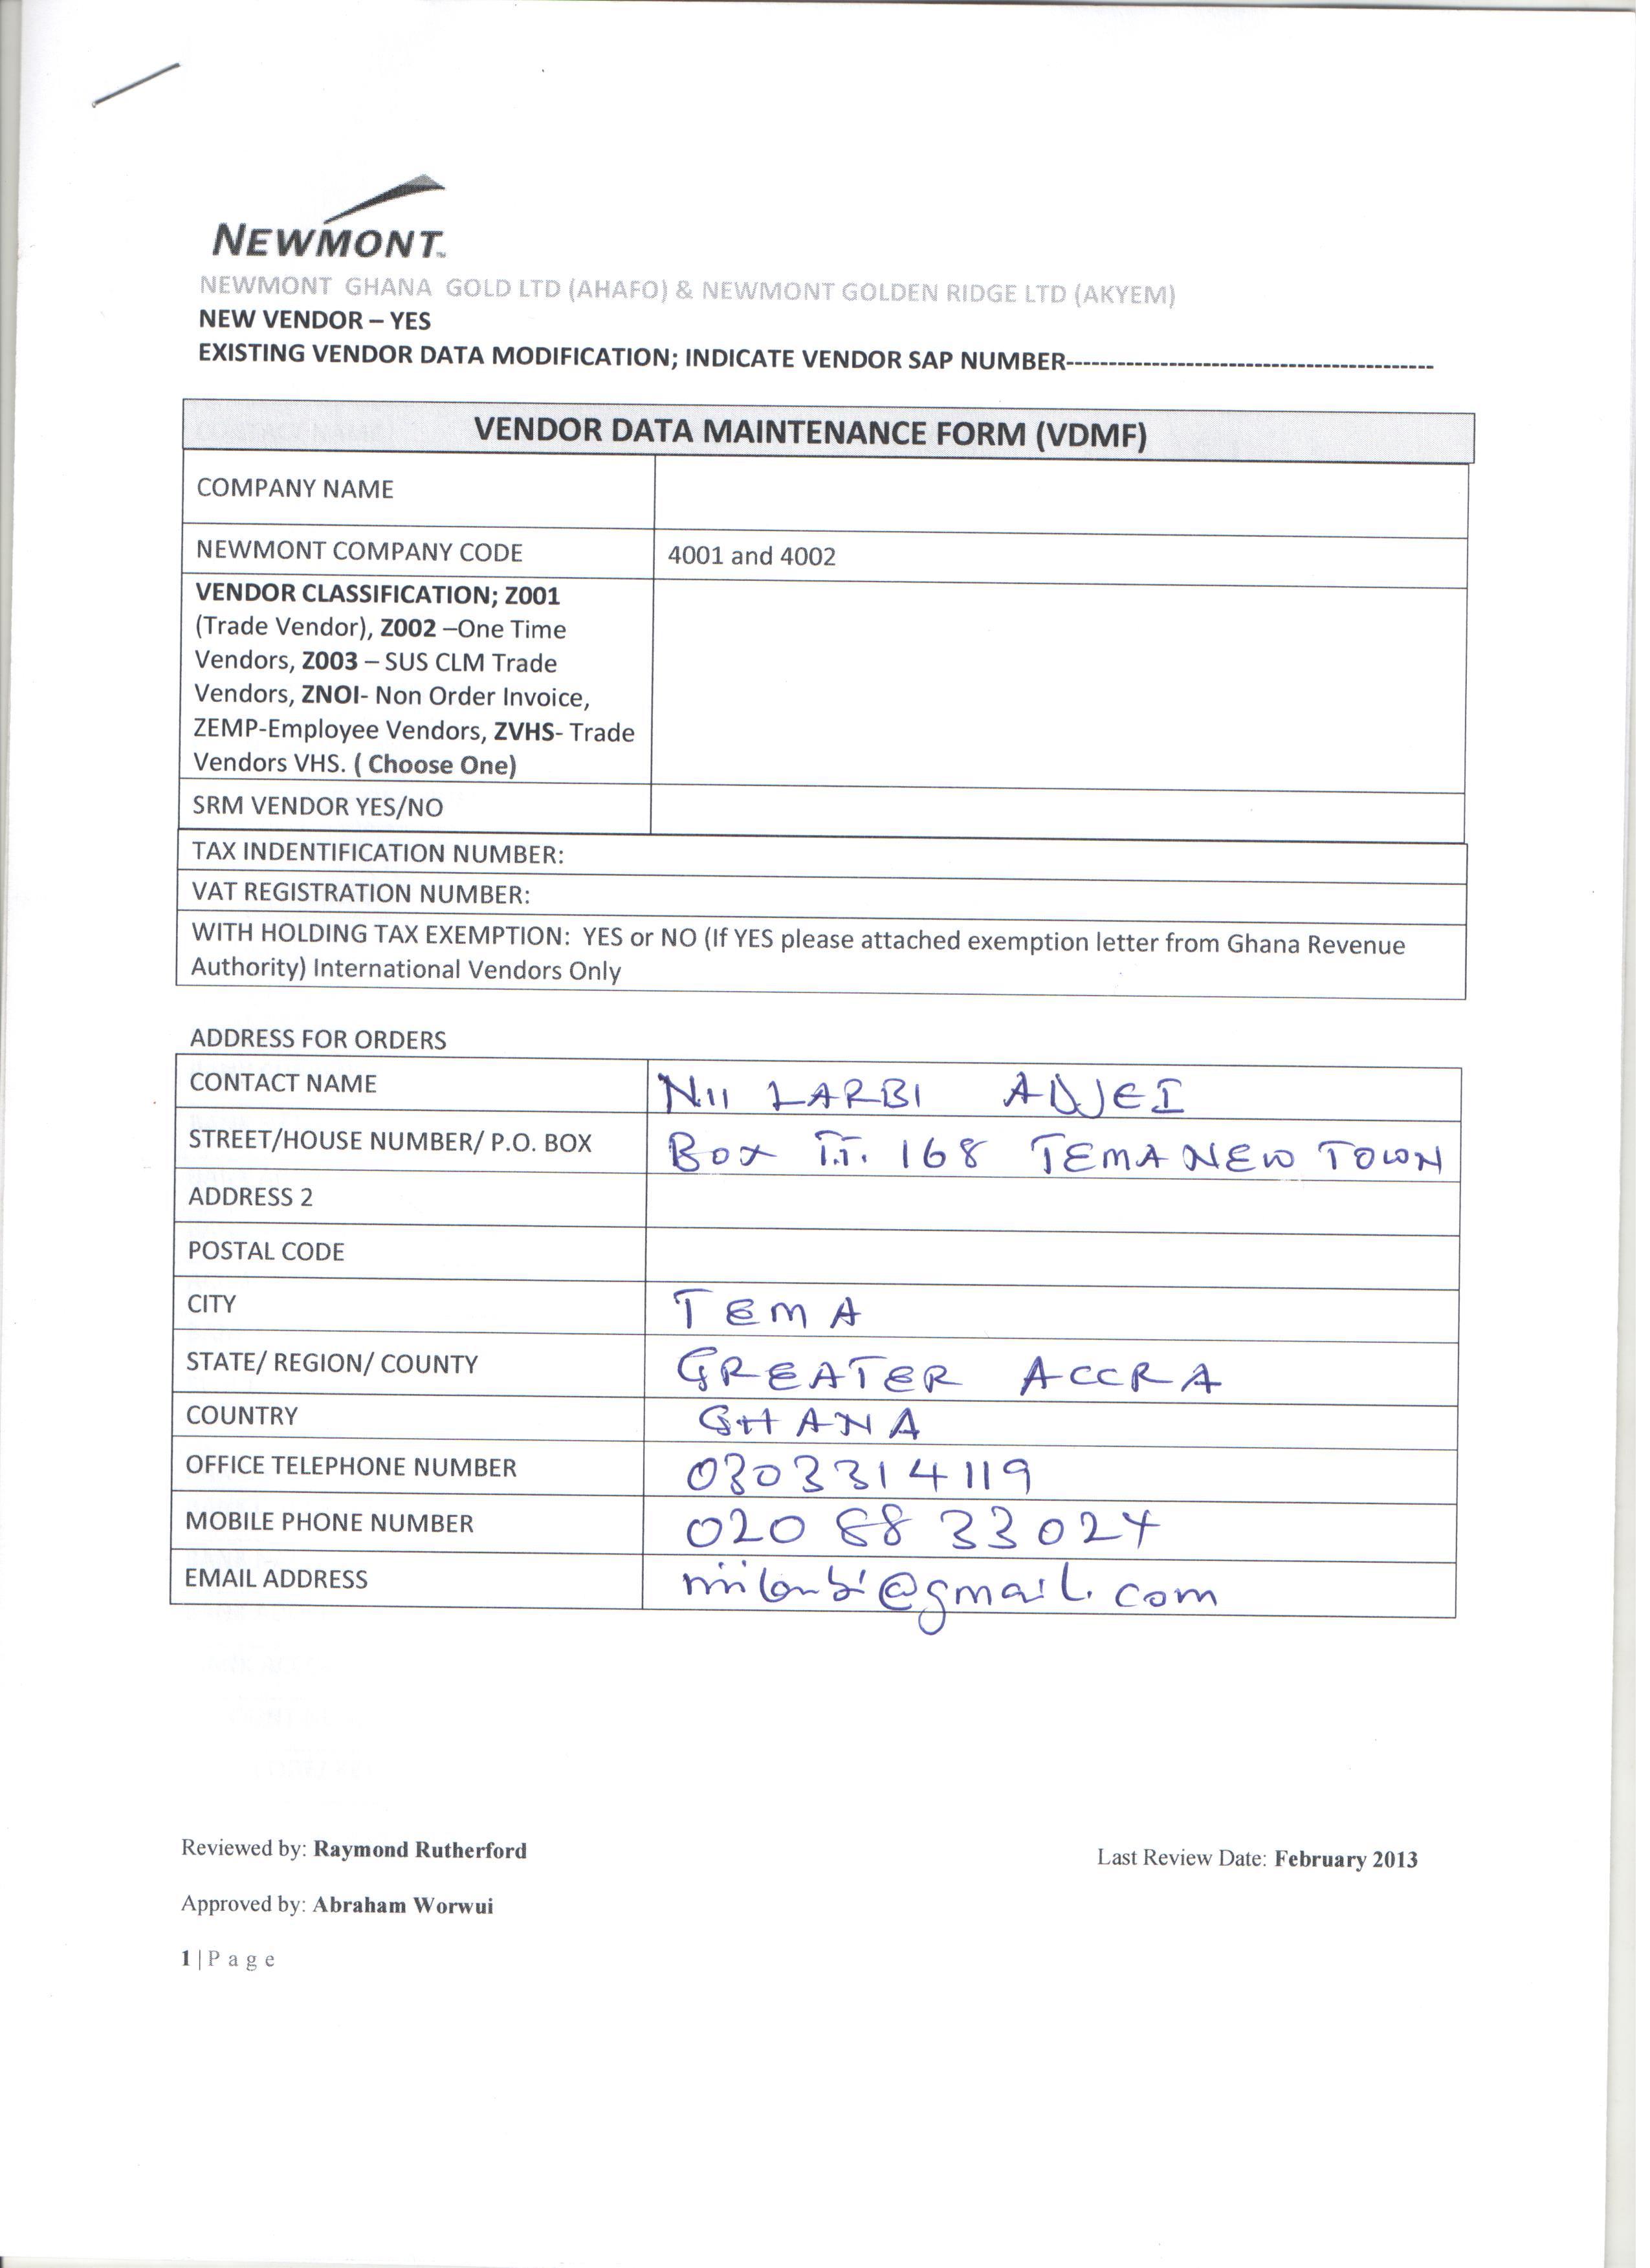 NEWMONT™
NEWMONT GHANA GOLD LTD (AHAFO) & NEWMONT GOLDEN RIDGE LTD (AKYEM)
NEW VENDOR – YES
EXISTING VENDOR DATA MODIFICATION; INDICATE VENDOR SAP NUMBER-------------------------------------------
VENDOR DATA MAINTENANCE FORM (VDMF)
COMPANY NAME
NEWMONT COMPANY CODE 4001 and 4002
VENDOR CLASSIFICATION; Z001
(Trade Vendor), Z002 –One Time
Vendors, Z003 – SUS CLM Trade
Vendors, ZNOI- Non Order Invoice,
ZEMP-Employee Vendors, ZVHS- Trade
Vendors VHS. ( Choose One)
SRM VENDOR YES/NO
TAX INDENTIFICATION NUMBER:
VAT REGISTRATION NUMBER:
WITH HOLDING TAX EXEMPTION: YES or NO (If YES please attached exemption letter from Ghana Revenue
Authority) International Vendors Only
ADDRESS FOR ORDERS
CONTACT NAME NII LARBI ADJEI
STREET/HOUSE NUMBER/ P.O. BOX BOX T.T. 168 TEMA NEW TOWN
ADDRESS 2
POSTAL CODE
CITY TEMA
STATE/ REGION/ COUNTY GREATER ACCRA
COUNTRY GHANA
OFFICE TELEPHONE NUMBER 0303314119
MOBILE PHONE NUMBER 020 88 33024
EMAIL ADDRESS niilarbi@gmail.com
Reviewed by: Raymond Rutherford
Last Review Date: February 2013
Approved by: Abraham Worwui
1 | P a g e